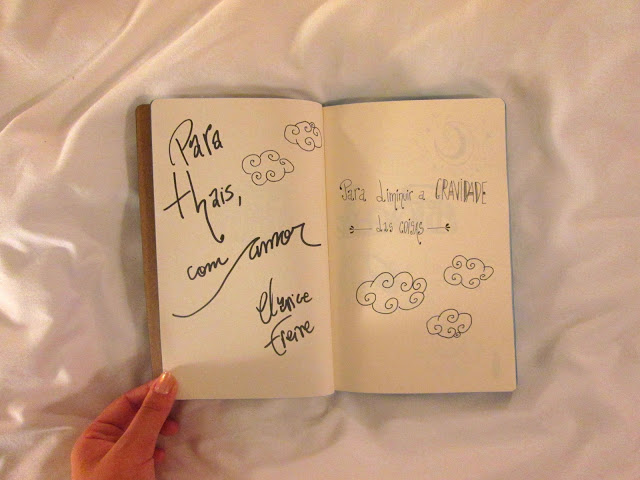 Para
thais,
com amor
Elynice
Freire
Para diminuir a GRAVIDADE
das coisas